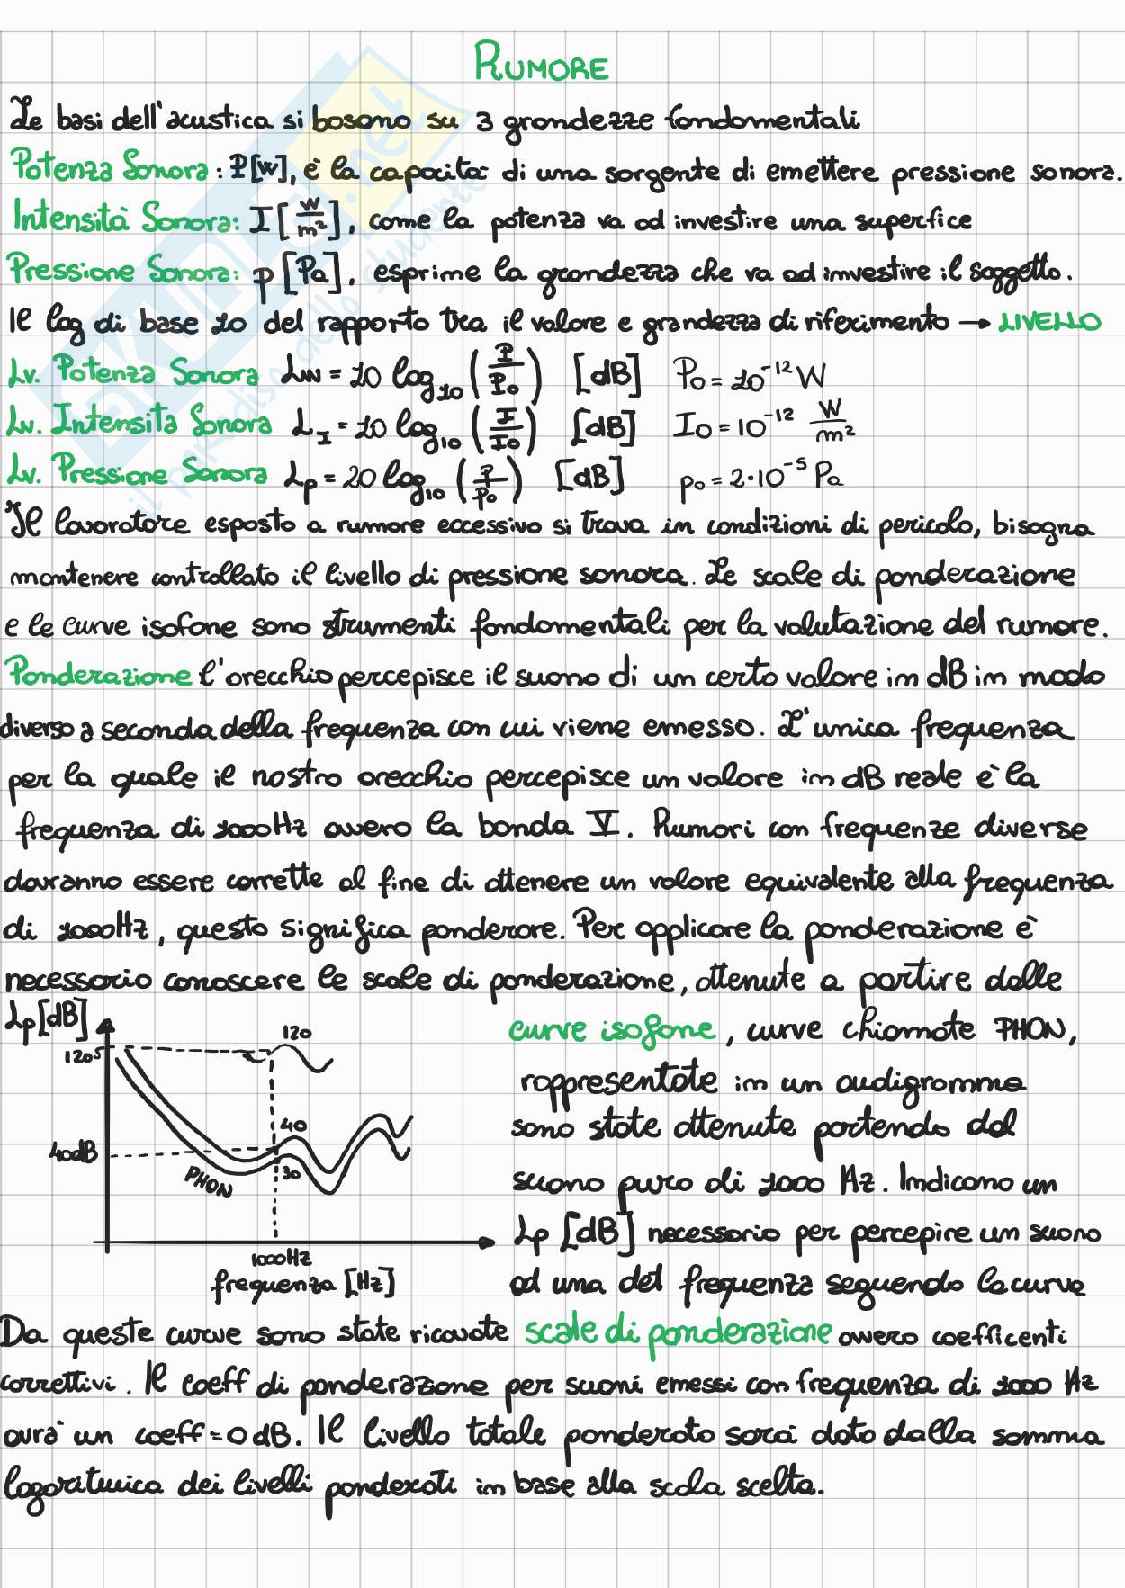 RUMORE
Le basi dell'acustica si basano su 3 grandezze fondamentali
Potenza Sonora: P[W], è la capacità di una sorgente di emettere pressione sonora.
Intensità Sonora: I [W/m²], come la potenza va ad investire una superfice
Pressione Sonora: p [Pa], esprime la grandezza che va ad investire il soggetto.
Il log di base 10 del rapporto tra il valore e grandezza di riferimento → LIVELLO
Lv. Potenza Sonora Lw = 10 log₁₀ (P/P₀) [dB] P₀ = 10⁻¹² W
Lv. Intensità Sonora L_I = 10 log₁₀ (I/I₀) [dB] I₀ = 10⁻¹² W/m²
Lv. Pressione Sonora Lp = 20 log₁₀ (p/p₀) [dB] p₀ = 2·10⁻⁵ Pa
Il lavoratore esposto a rumore eccessivo si trova in condizioni di pericolo, bisogna
mantenere controllato il livello di pressione sonora. Le scale di ponderazione
e le curve isofone sono strumenti fondamentali per la valutazione del rumore.
Ponderazione l'orecchio percepisce il suono di un certo valore in dB in modo
diverso a seconda della frequenza con cui viene emesso. L'unica frequenza
per la quale il nostro orecchio percepisce un valore in dB reale è la
frequenza di 1000Hz ovvero la banda V. Rumori con frequenze diverse
dovranno essere corrette al fine di ottenere un valore equivalente alla frequenza
di 1000Hz, questo significa ponderare. Per applicare la ponderazione è
necessario conoscere le scale di ponderazione, ottenute a partire dalle
curve isofone, curve chiamate PHON,
rappresentate in un audigramma
sono state ottenute partendo dal
suono puro di 1000 Hz. Indicano un
Lp [dB] necessario per percepire un suono
ad una det frequenza seguendo la curva
Lp[dB]
120
120
40
40dB
30
PHON
1000Hz
frequenza [Hz]
Da queste curve sono state ricavate scale di ponderazione ovvero coefficenti
correttivi. Il coeff di ponderazione per suoni emessi con frequenza di 1000 Hz
avrà un coeff = 0 dB. Il livello totale ponderato sarà dato dalla somma
logaritmica dei livelli ponderati in base alla scala scelta.